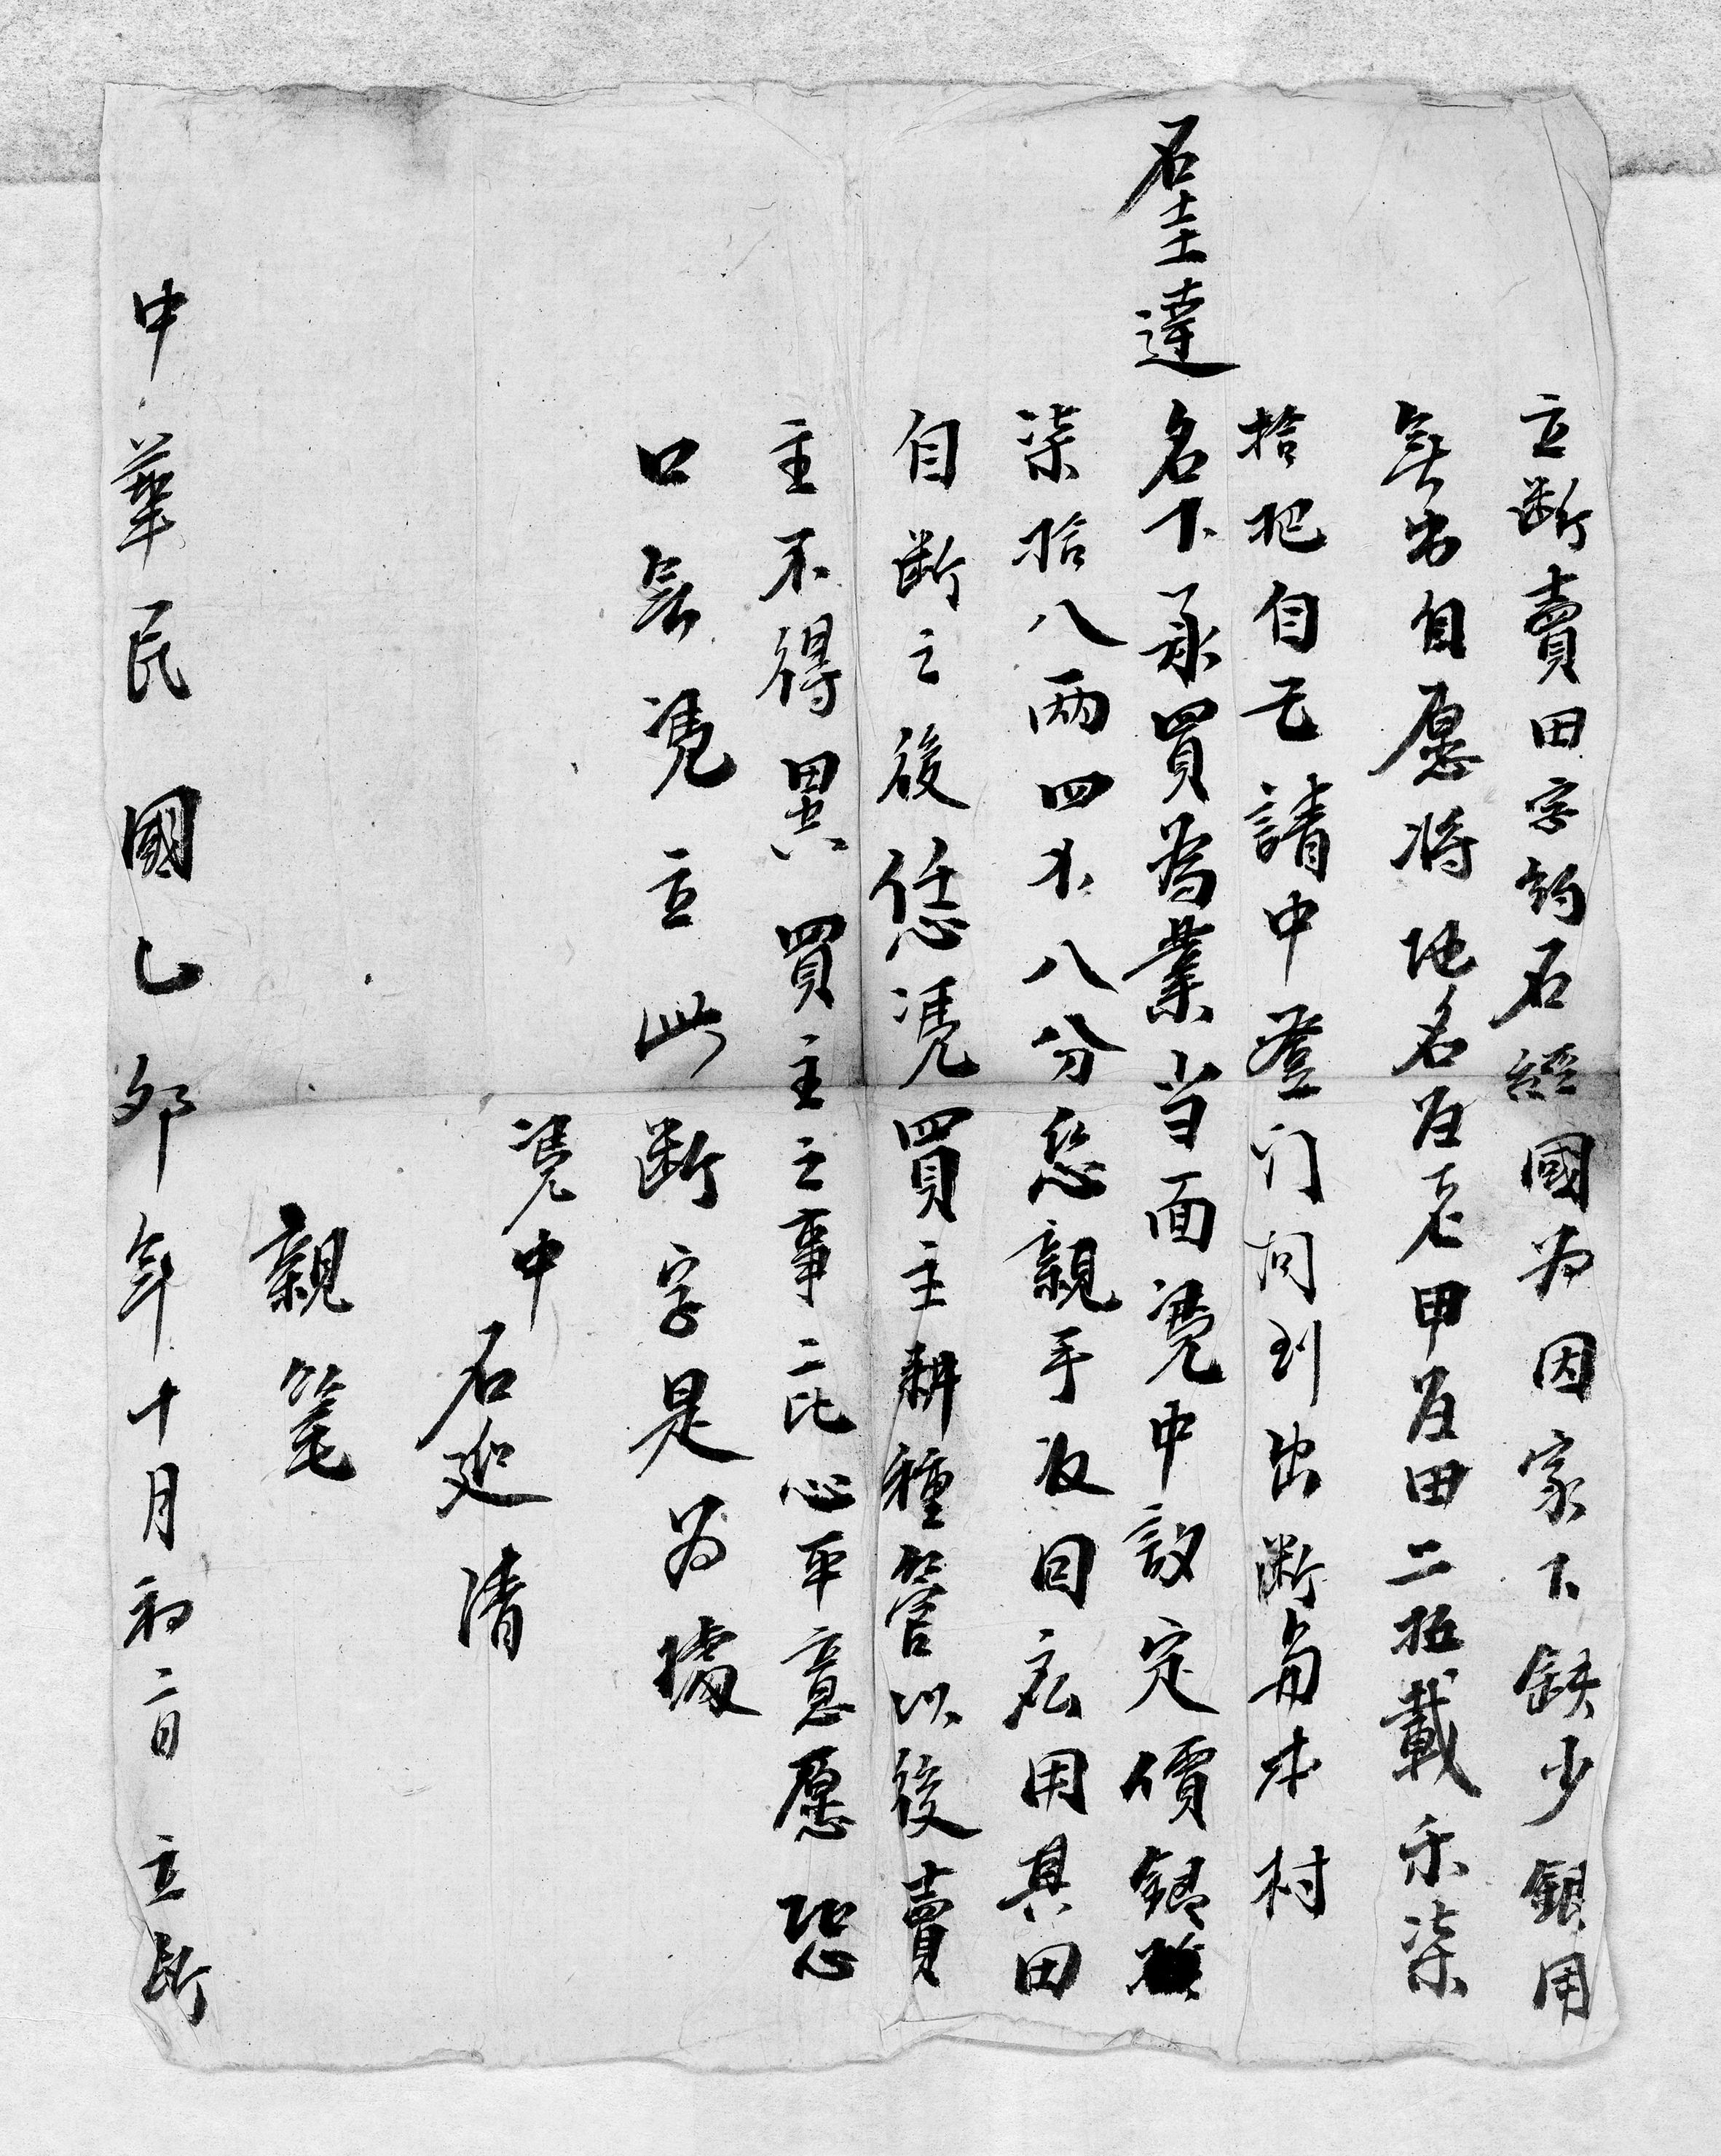 立断賣田字約石經國为因家下缺少銀用
無出自愿将地名
甲
田二坵載禾柒
拾把自己請中登门问到出断与本村
石士達名下承買為業当面凴中議定價銀
柒拾八两四
八分
親手收回
用其田
自断之後恁凴買主耕種管以後賣
主不得異買主之事二比心平意愿恐
口無凴立此断字是为據
凴中
石
清
親筆
中華民國乙卯年十月初二日立断